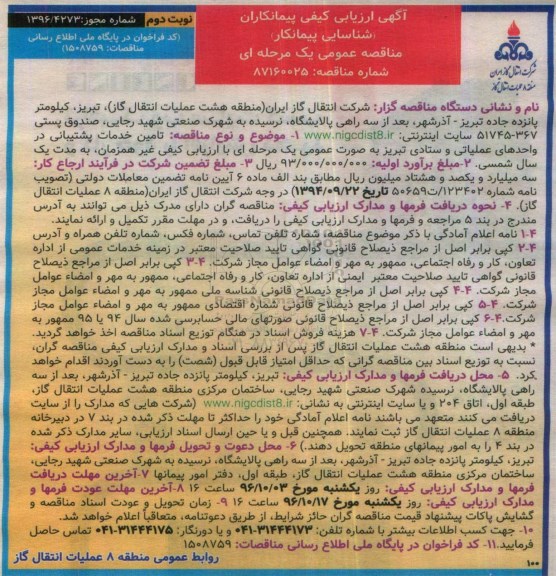 آگهی ارزیابی کیفی پیمانکاران
(شناسایی پیمانکار)
مناقصه عمومی یک مرحله ای
شماره مناقصه: ۸۷۱۶۰۰۲۵
نوبت دوم
شماره مجوز: ۱۳۹۶/۴۲۷۳
(کد فراخوان در پایگاه ملی اطلاع رسانی
مناقصات: ۱۵۰۸۷۵۹)
شرکت ملی گاز ایران
شرکت انتقال گاز ایران
منطقه ۸ عملیات انتقال گاز
نام و نشانی دستگاه مناقصه گزار: شرکت انتقال گاز ایران(منطقه هشت عملیات انتقال گاز)، تبریز، کیلومتر
پانزده جاده تبریز - آذرشهر، بعد از سه راهی پالایشگاه، نرسیده به شهرک صنعتی شهید رجایی، صندوق پستی
۵۱۷۴۵-۳۶۷ سایت اینترنتی: www.nigcdist8.ir ۱- موضوع و نوع مناقصه: تامین خدمات پشتیبانی در
واحدهای عملیاتی و ستادی تبریز به صورت عمومی یک مرحله ای با ارزیابی کیفی غیر همزمان، به مدت یک
سال شمسی. ۲-مبلغ برآورد اولیه: ۹۳/۰۰۰/۰۰۰/۰۰۰ ریال ۳- مبلغ تضمین شرکت در فرآیند ارجاع کار:
سه میلیارد و یکصد و هشتاد میلیون ریال مطابق بند الف ماده ۶ آیین نامه تضمین معاملات دولتی (تصویب
نامه شماره ۱۲۳۴۰۲/ت۵۰۶۵۹ تاریخ ۱۳۹۴/۰۹/۲۲) در وجه شرکت انتقال گاز ایران(منطقه ۸ عملیات انتقال
گاز). ۴- نحوه دریافت فرمها و مدارک ارزیابی کیفی: مناقصه گران دارای مدرک ذیل می توانند به آدرس
مندرج در بند ۵ مراجعه و فرمها و مدارک ارزیابی کیفی را دریافت، و در مهلت مقرر تکمیل و ارائه نمایند.
۴-۱ نامه اعلام آمادگی با ذکر موضوع مناقصه، شماره تلفن تماس، شماره فکس، شماره تلفن همراه و آدرس
۴-۲ کپی برابر اصل از مراجع ذیصلاح قانونی گواهی تایید صلاحیت معتبر در زمینه خدمات عمومی از اداره
تعاون، کار و رفاه اجتماعی، ممهور به مهر و امضاء عوامل مجاز شرکت. ۴-۳ کپی برابر اصل از مراجع ذیصلاح
قانونی گواهی تایید صلاحیت معتبر ایمنی از اداره تعاون، کار و رفاه اجتماعی، ممهور به مهر و امضاء عوامل
مجاز شرکت. ۴-۴ کپی برابر اصل از مراجع ذیصلاح قانونی شناسه ملی ممهور به مهر و امضاء عوامل مجاز
شرکت. ۴-۵ کپی برابر اصل از مراجع ذیصلاح قانونی شماره اقتصادی ممهور به مهر و امضاء عوامل مجاز
شرکت.۴-۶ کپی برابر اصل از مراجع ذیصلاح قانونی صورتهای مالی حسابرسی شده سال ۹۴ یا ۹۵ ممهور به
مهر و امضاء عوامل مجاز شرکت. ۴-۷ هزینه فروش اسناد در هنگام توزیع اسناد مناقصه اخذ خواهد گردید.
* بدیهی است منطقه هشت عملیات انتقال گاز پس از بررسی اسناد و مدارک ارزیابی کیفی مناقصه گران،
نسبت به توزیع اسناد بین مناقصه گرانی که حداقل امتیاز قابل قبول (شصت) را به دست آوردند اقدام خواهد
کرد. ۵- محل دریافت فرمها و مدارک ارزیابی کیفی: تبریز، کیلومتر پانزده جاده تبریز - آذرشهر، بعد از سه
راهی پالایشگاه، نرسیده شهرک صنعتی شهید رجایی، ساختمان مرکزی منطقه هشت عملیات انتقال گاز،
طبقه اول، اتاق ۲۰۴ و یا سایت اینترنتی به نشانی: www.nigcdist8.ir (شرکت هایی که مدارک را از سایت
دریافت می کنند متعهد می باشند نامه اعلام آمادگی خود را حداکثر تا مهلت ذکر شده در بند ۷ در دبیرخانه
منطقه ۸ عملیات انتقال گاز ثبت نمایند. همچنین قبل و یا حین ارسال اسناد ارزیابی، سایر مدارک ذکر شده
در بند ۴ را به امور پیمانهای منطقه تحویل دهند.) ۶- محل دعوت و تحویل فرمها و مدارک ارزیابی کیفی:
تبریز، کیلومتر پانزده جاده تبریز - آذرشهر، بعد از سه راهی پالایشگاه، نرسیده به شهرک صنعتی شهید رجایی،
ساختمان مرکزی منطقه هشت عملیات انتقال گاز، طبقه اول، دفتر امور پیمانها ۷-آخرین مهلت دریافت
فرمها و مدارک ارزیابی کیفی: روز یکشنبه مورخ ۹۶/۱۰/۰۳ ساعت ۱۶ ۸-آخرین مهلت عودت فرمها و
مدارک ارزیابی کیفی: روز یکشنبه مورخ ۹۶/۱۰/۱۷ ساعت ۱۶ ۹- زمان تحویل و عودت اسناد مناقصه و
گشایش پاکات پیشنهاد قیمت مناقصه گران حائز شرایط، از طریق دعوتنامه، متعاقباً اعلام خواهد شد.
۱۰- جهت کسب اطلاعات بیشتر با شماره تلفن: ۳۱۴۴۴۱۷۳-۰۴۱ و یا دورنگار: ۳۱۴۴۴۱۷۵-۰۴۱ تماس حاصل
فرمایید.۱۱- کد فراخوان در پایگاه ملی اطلاع رسانی مناقصات: ۱۵۰۸۷۵۹
روابط عمومی منطقه ۸ عملیات انتقال گاز
۱۰۰